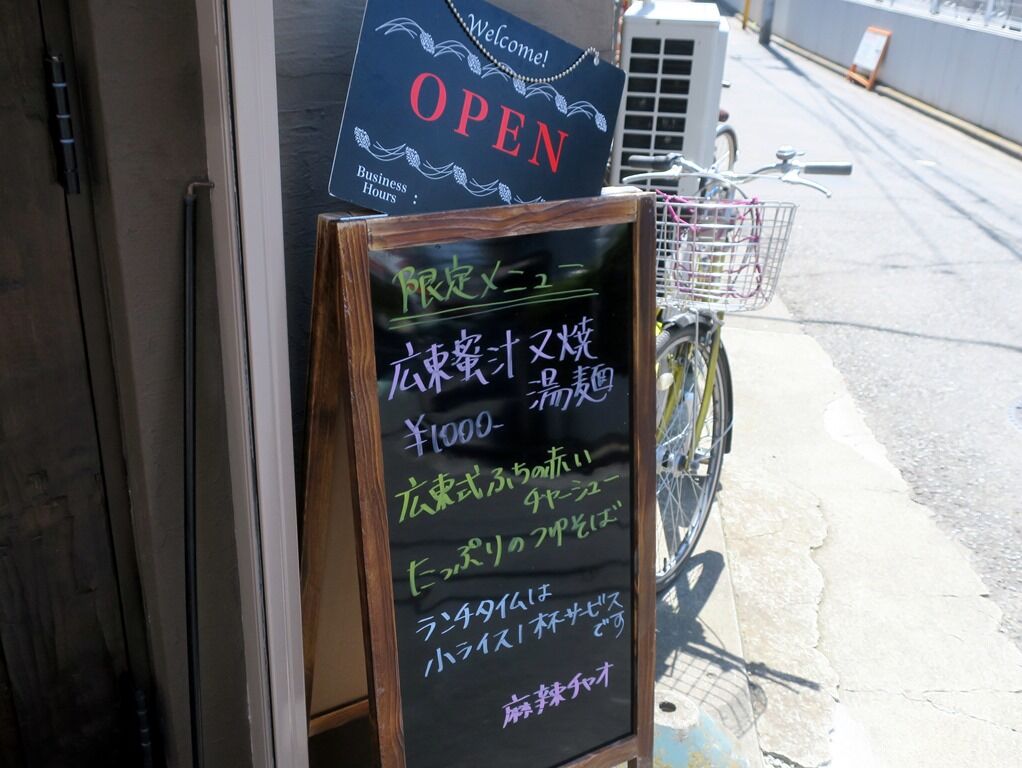 Welcome!
OPEN
Business
Hours :
限定メニュー
広東蜜汁叉焼
湯麺
¥1000-
広東式ふちの赤い
チャーシュー
たっぷりのつゆそば
ランチタイムは
小ライス1杯サービス
です
麻辣チャオ